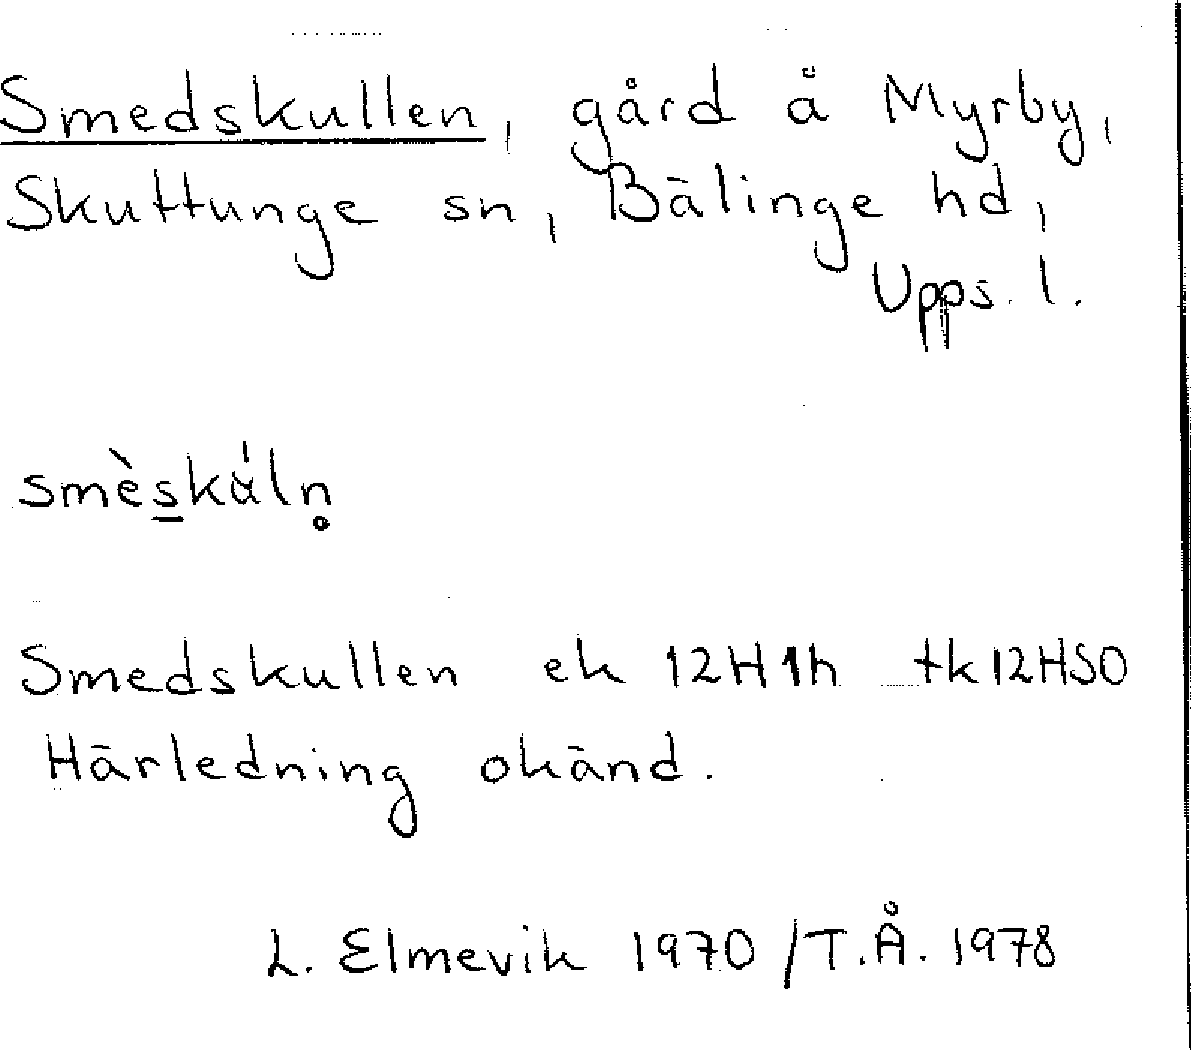 Smedskullen, gård å Myrby,
Skuttunge sn, Bälinge hd,
Upps. l.
smèskáln̥
Smedskullen ek 12H1h tk12HSO
Härledning okänd.
L. Elmevik 1970 /T.Å. 1978